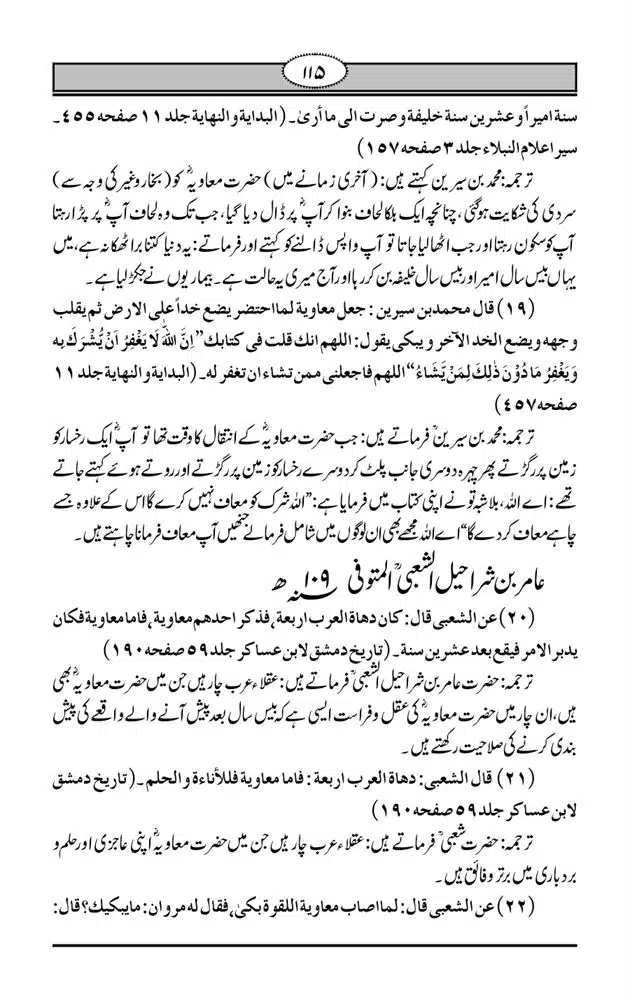 ۱۱۵
سنة اميراً وعشرين سنة خليفة وصرت الى ما أرىٰ۔ (البداية والنهاية جلد ۱۱ صفحه ۴۵۵۔
سير اعلام النبلاء جلد ۳ صفحه ۱۵۷)
ترجمہ: محمد بن سیرین کہتے ہیں: (آخری زمانے میں) حضرت معاویہؓ کو (بخار وغیر کی وجہ سے)
سردی کی شکایت ہوگئی، چنانچہ ایک ہلکا لحاف بنوا کر آپؓ پر ڈال دیا گیا، جب تک وہ لحاف آپؓ پر پڑا رہتا
آپ کو سکون رہتا اور جب اٹھا لیا جاتا تو آپ واپس ڈالنے کو کہتے اور فرماتے: یہ دنیا کتنا برا ٹھکانہ ہے، میں
یہاں بیس سال امیر اور بیس سال خلیفہ بن کر رہا اور آج میری یہ حالت ہے۔ بیماریوں نے جکڑ لیا ہے۔
(۱۹) قال محمد بن سيرين : جعل معاوية لما احتضر يضع خداً على الارض ثم يقلب
وجهه ويضع الخد الآخر و يبكى يقول: اللهم انك قلت فى كتابك ”اِنَّ اللّٰهَ لَا يَغْفِرُ اَنْ يُّشْرَكَ به
وَيَغْفِرُ مَا دُوْنَ ذٰلِكَ لِمَنْ يَّشَاءُ“ اللهم فاجعلنى ممن تشاء ان تغفر له۔ (البداية والنهاية جلد ۱۱
صفحه ۴۵۷)
ترجمہ: محمد بن سیرینؒ فرماتے ہیں: جب حضرت معاویہؓ کے انتقال کا وقت تھا تو آپؓ ایک رخسار کو
زمین پر رگڑتے پھر چہرہ دوسری جانب پلٹ کر دوسرے رخسار کو زمین پر رگڑتے اور روتے ہوئے کہتے جاتے
تھے: اے اللہ، بلاشبہ تو نے اپنی کتاب میں فرمایا ہے: ”اللہ شرک کو معاف نہیں کرے گا اس کے علاوہ جسے
چاہے معاف کر دے گا“ اے اللہ مجھے بھی ان لوگوں میں شامل فرمالے جنھیں آپ معاف فرمانا چاہتے ہیں۔
عامر بن شراحیل الشعبیؒ المتوفی ۱۰۹ سنہ ھ
(۲۰) عن الشعبى قال: كان دهاة العرب اربعة، فذكر احدهم معاوية، فاما معاوية فكان
يدبر الامر فيقع بعد عشرين سنة۔ (تاريخ دمشق لابن عساكر جلد ۵۹ صفحه ۱۹۰)
ترجمہ: حضرت عامر بن شراحیل الشعبیؒ فرماتے ہیں: عقلاء عرب چار ہیں جن میں حضرت معاویہؓ بھی
ہیں، ان چار میں حضرت معاویہؓ کی عقل و فراست ایسی ہے کہ بیس سال بعد پیش آنے والے واقعے کی پیش
بندی کرنے کی صلاحیت رکھتے ہیں۔
(۲۱) قال الشعبى: دهاة العرب اربعة : فاما معاوية فللأناءة والحلم۔ (تاريخ دمشق
لابن عساكر جلد ۵۹ صفحه ۱۹۰)
ترجمہ: حضرت شعبیؒ فرماتے ہیں: عقلاء عرب چار ہیں جن میں حضرت معاویہؓ اپنی عاجزی اور حلم و
بردباری میں برتر و فائق ہیں۔
(۲۲) عن الشعبى قال: لما اصاب معاوية اللقوة بكىٰ، فقال له مروان: ما يبكيك؟ قال: